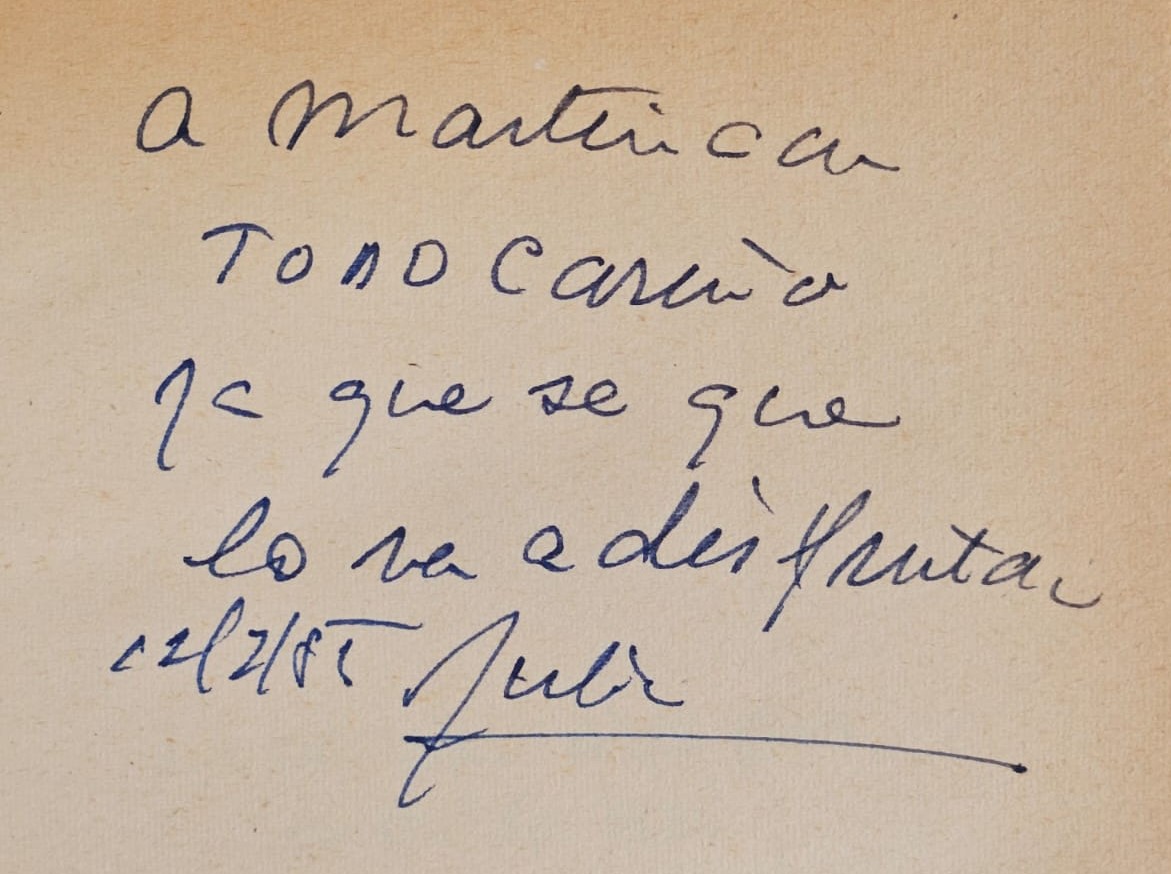 a Martin con
TODO Cariño
ya que se que
lo va a disfrutar
12/2/85 Julia